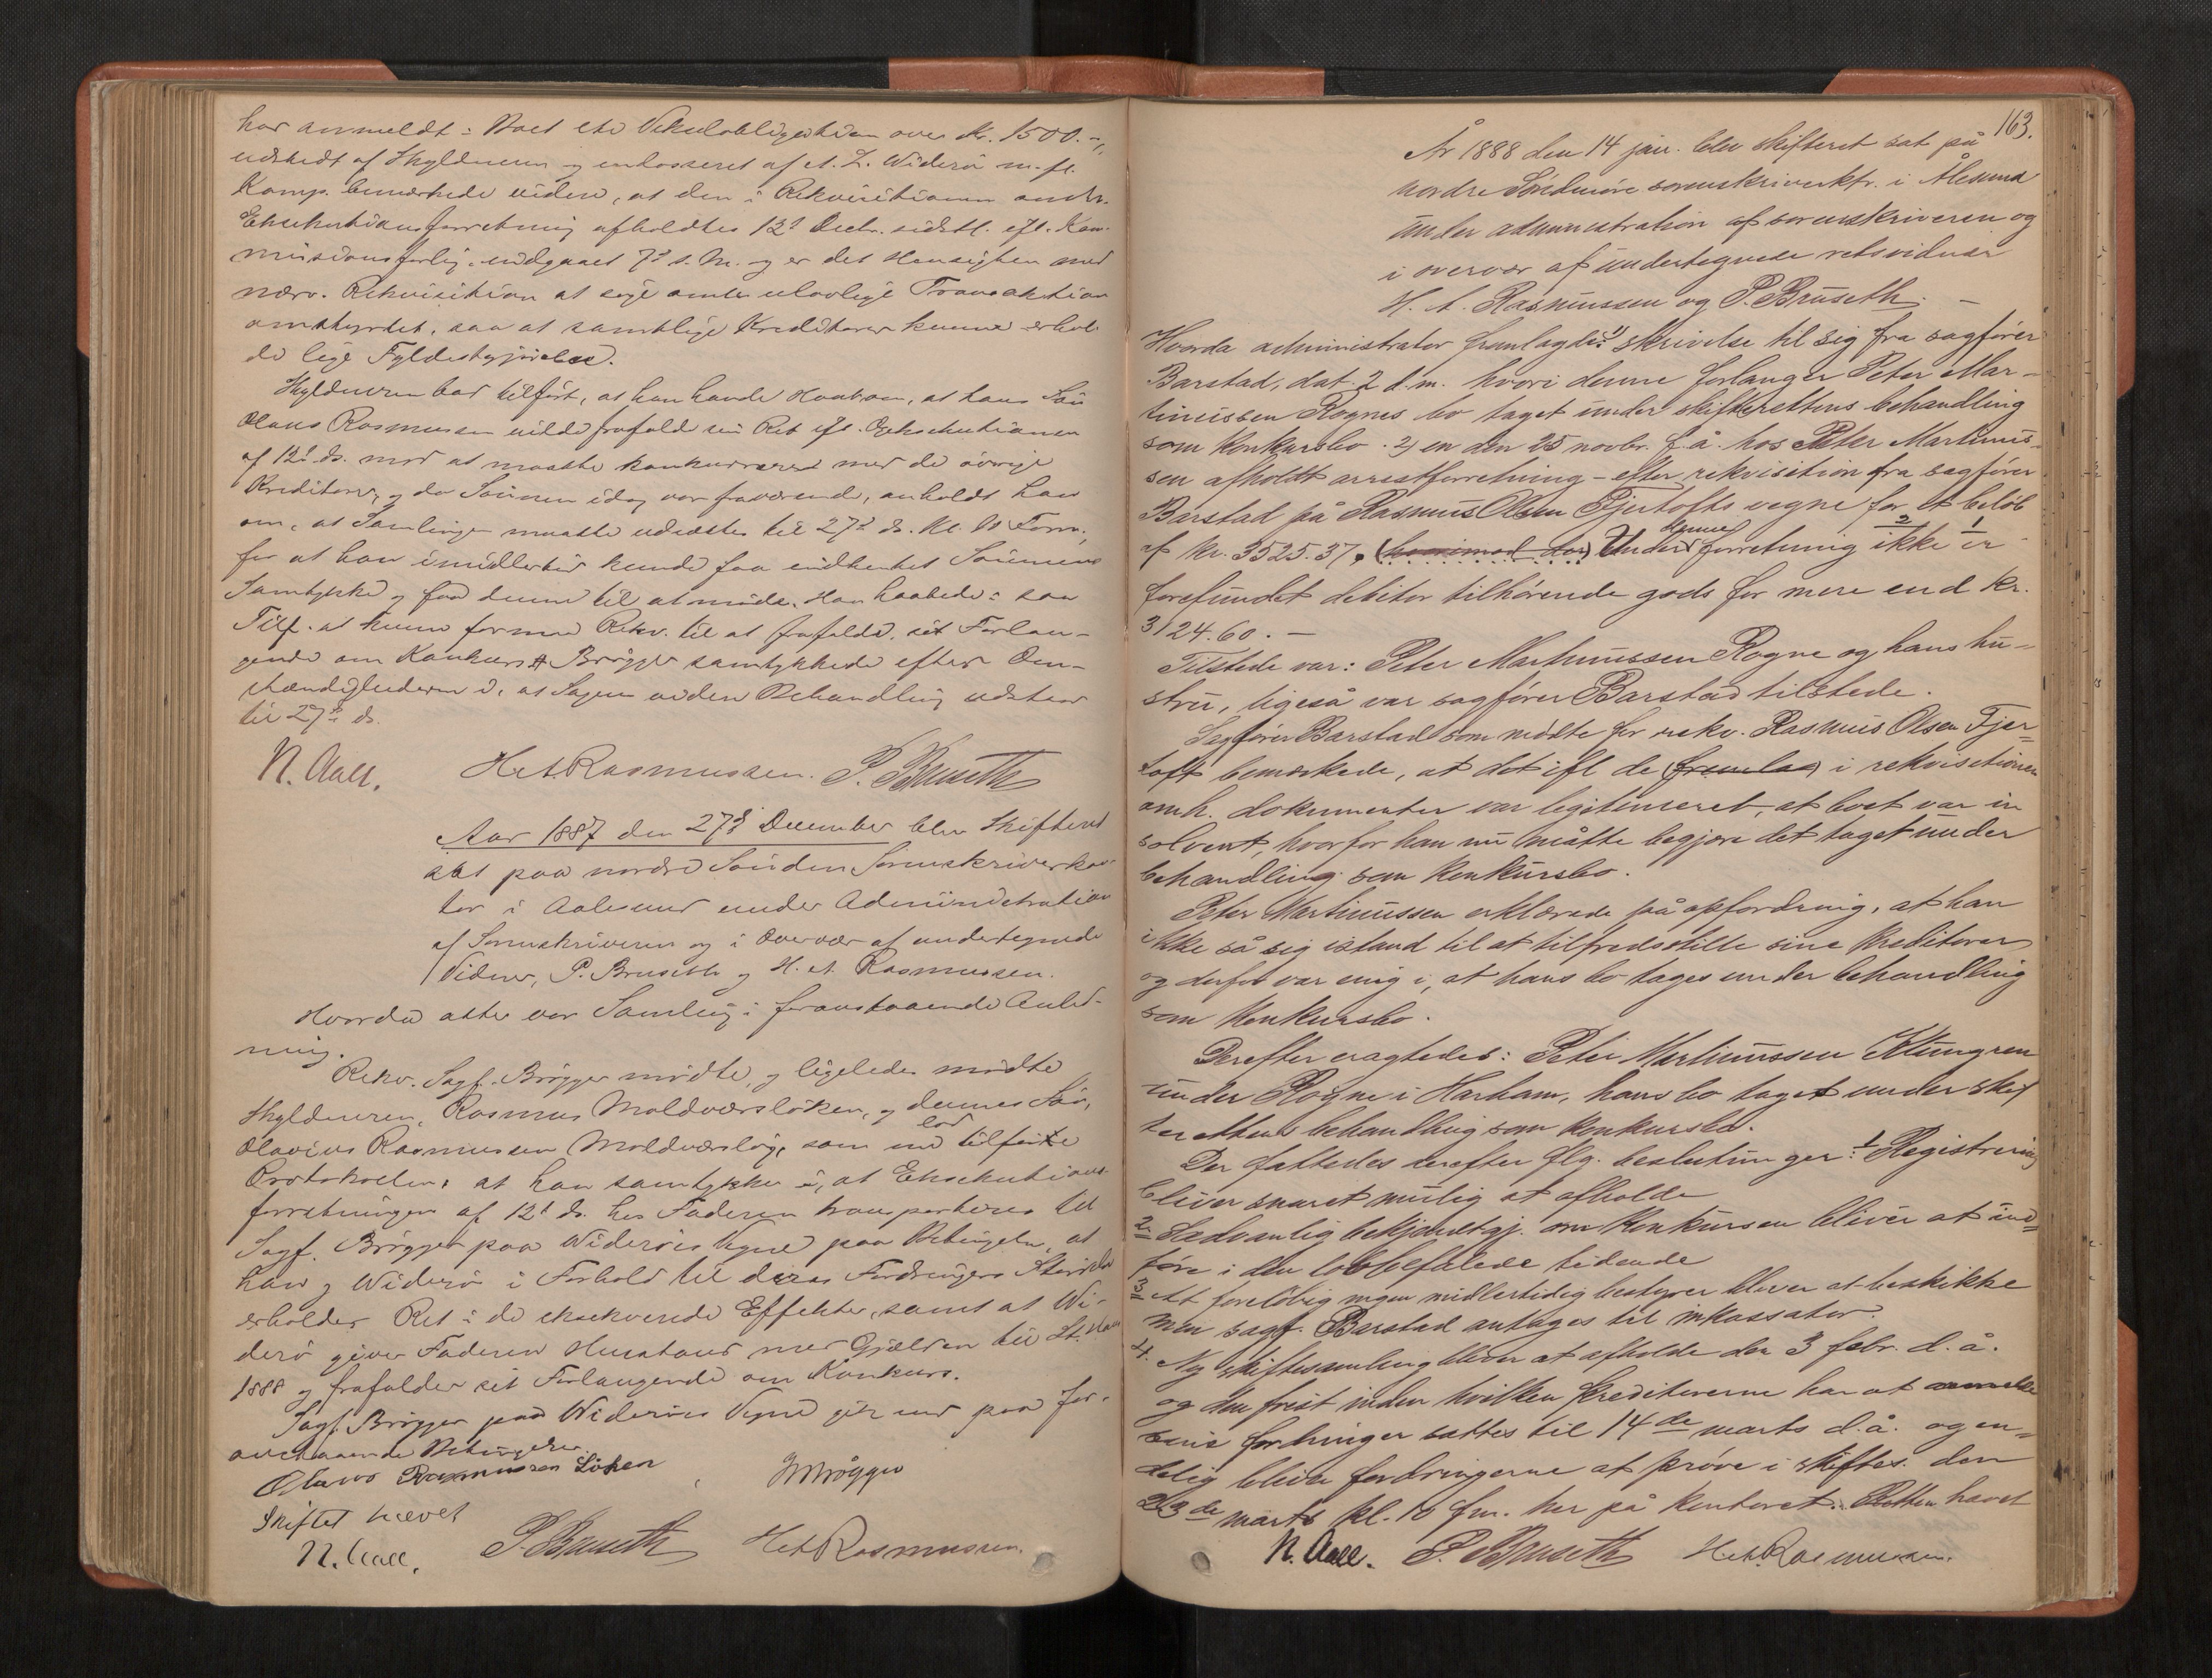 har anmeldt i Boet etc Vekselobligation over Kr. 1500.-,
udstedt af Skyldneren og endosseret af A. L. Widerö m. fl.
Komp. bemærkede videre, at den i Rekvisitionen omh.
Eksekutionsforretning afholdtes 12te Decbr. sidstl. efl. Kom-
missionsforlig, indgaaet 7de s. M. og er det Hensigten med
nærv. Rekvisition at søge omh. ulovlige Transaktion
omstyrtet, saa at samtlige Kreditorer kunne erhol-
de lige Fyldestgjörelse.
Skyldneren bad tilført, at han havde Haab om, at hans Sön
Olaus Rasmussen vilde frafalde sin Ret efl. Eksekutionen
af 12te ds. mod at maatte konkurrere med de övrige
Kreditorer, og da Sönnen idag var fraværende, anholdt han
om, at Samlingen maatte udsættes til 27de ds. Kl. 10 Form.,
for at han imidlertid kunde faa indhentet Sönnens
Samtykke og faa denne til at möde. Han haabede i saa
Tilf. at kunne formaa Rekv. til at frafalde sit Forlan-
gende om Konkurs. Brögger samtykkede efter Om-
stændighederne i, at Sagen uden Behandling udstaar
til 27de ds.
N. Aall. H. A. Rasmussen. P. Bruseth
Aar 1887 den 27de December blev Skifteret
sat paa nordre Söndm. Sorenskriverkon-
tor i Aalesund under Administration
af Sorenskriveren og i Overvær af undertegnede
Vidner, P. Bruseth og H. A. Rasmussen.
Hvorda atter var Samling i foranstaaende Anled-
ning.
Rekv. Sagf. Brögger mödte, og ligeledes mødte
Skyldneren, Rasmus Moldværslöken, og dennes Sön,
Olavius Rasmussen Moldværslög, som lod tilföre
Protokollen, at han samtykker i, at Eksekutions-
forretningen af 12te ds. hos Faderen transporteres til
Sagf. Brögger paa Widerös Vegne paa Betingelse, at
han og Widerö i Forhold til deres Fordringers Störrelse
erholder Ret i de eksekverede Effekter, samt at Wi-
derö giver Faderen Henstand med Gjælden til St. Hans
1888 og frafalder sit Forlangende om Konkurs.
Sagf. Brögger paa Widerös Vegne gik ind paa for-
anstaaende Betingelser.
Olaus Rasmussen Löken Brögger
Skiftet hævet
N. Aall. P. Bruseth H. A. Rasmussen.
163.
År 1888 den 14 jan. blev skifteret sat på
nordre Söndmöre sorenskriverktr. i Ålesund
under administration af sorenskriveren og
i overvær af undertegnede retsvidner
H. A. Rasmussen og P. Bruseth. –
Hvorda administrator fremlagde: 1) skrivelse til sig fra sagförer
Barstad, dat. 2 d. m. hvori denne forlanger Peter Mar-
tinussen Rognes bo taget under skifterettens behandling
som konkursbo. 2) en den 25 novbr. f. å. hos Peter Martinus-
sen afholdt arrestforretning – efter rekvisition fra sagförer
Barstad på Rasmus Olsen Fjertofts vegne for et belöb
af kr. 3525.37. (hvorimod der) Under denne forretning ikke 2 er 1
forefundet debitor tilhörende gods for mere end kr.
3124.60. –
Tilstede var: Peter Martinussen Rogne og hans hu-
stru, ligeså var sagförer Barstad tilstede.
Sagförer Barstad som mödte for rekv. Rasmus Olsen Fjer-
toft bemærkede, at det ifl de (fremlag) i rekvisitionen
omh. dokumenter var legitimeret, at boet var in
solvent, hvorfor han nu måtte begjære det taget under
behandling som konkursbo.
Peter Martinussen erklærede på opfordring, at han
ikke så sig istand til at tilfredsstille sine kreditorer
og derfor var enig i, at hans bo tages under behandling
som konkursbo.
Derefter eragtedes: Peter Martinussen Klungren
under Rogne i Harham, hans bo taget under skif
terettens behandling som konkursbo.
Der fattedes derefter flg. beslutninger: 1 Registrering
bliver snarest mulig at afholde
2 Sædvanlig bekjendtgj. om konkursen bliver at ind-
före i den lovbefalede tidende
3 At forelöbig ingen midlertidig bestyrer bliver at beskikke
men sagf. Barstad antages til inkassator.
4. Ny skiftesamling bliver at afholde den 3 febr. d. å.
og den frist inden hvilken kreditorerne har at anmelde
sine fordringer sattes til 14de marts d. å. og en-
delig bliver fordringerne at pröve i skiftes. den
23de marts kl. 10 fm. her på kontoret. Retten hævet
N. Aall. P. Bruseth H. A. Rasmussen.